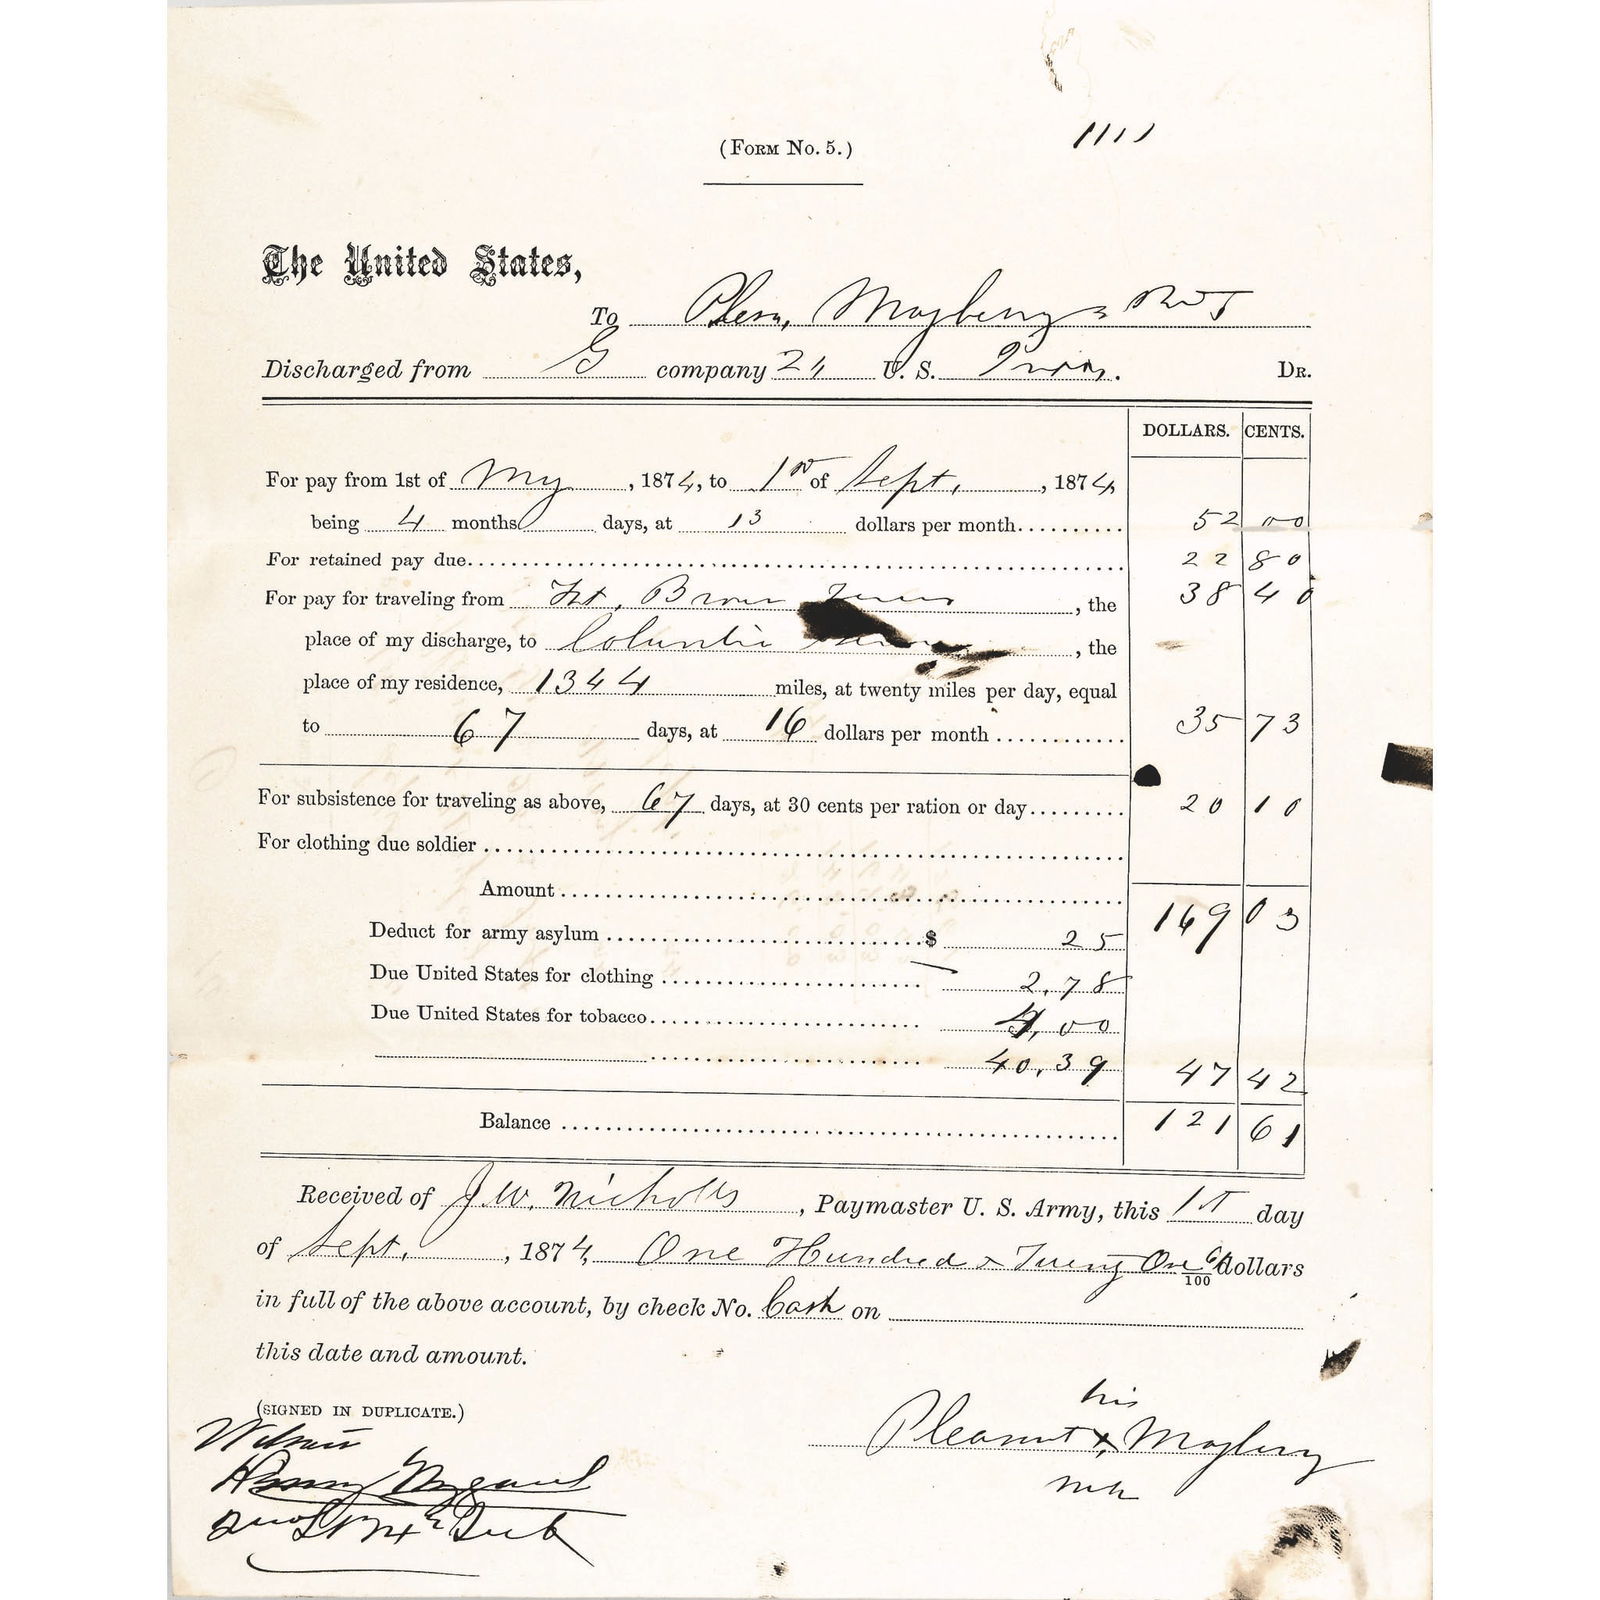 1111
(FORM No. 5.)
The United States,
To Pleas, Mayberry Pvt
Discharged from G company 24 U. S. Infan. DR.
DOLLARS. CENTS.
For pay from 1st of May, 1874, to 1st of Sept., 1874,
being 4 months days, at 13 dollars per month.......... 52 00
For retained pay due.......... 22 80
For pay for traveling from Ft. Brown Texas, the 38 40
place of my discharge, to Columbia, the
place of my residence, 1344 miles, at twenty miles per day, equal
to 67 days, at 16 dollars per month.......... 35 73
For subsistence for traveling as above, 67 days, at 30 cents per ration or day.......... 20 10
For clothing due soldier..........
Amount.......... 169 03
Deduct for army asylum..........$ 25
Due United States for clothing.......... 2,78
Due United States for tobacco.......... 4,00
.......... 40,39 47 42
Balance.......... 121 61
Received of J. W. Nicholls, Paymaster U. S. Army, this 1st day
of Sept., 1874, One Hundred & Twenty One 61/100 dollars
in full of the above account, by check No. Cash on
this date and amount.
(SIGNED IN DUPLICATE.)
his
Pleasant x Mayberry
mk
Witness
Henry